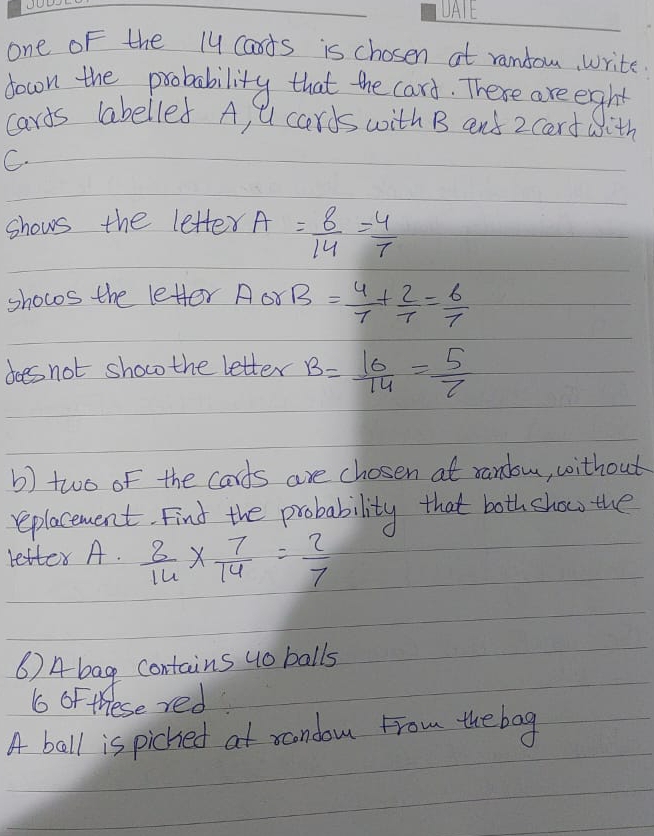 DATE
one of the 14 cards is chosen at random. Write
down the probability that the card. There are eight
cards labelled A, 4 cards with B and 2 card with
C.
Shows the letter A = 8/14 = 4/7
shows the letter A or B = 4/7 + 2/7 = 6/7
does not show the letter B = 10/14 = 5/7
b) two of the cards are chosen at random, without
replacement. Find the probability that both show the
letter A. 8/14 × 7/14 = 2/7
6) A bag contains 40 balls
16 of these red.
A ball is picked at random from the bag